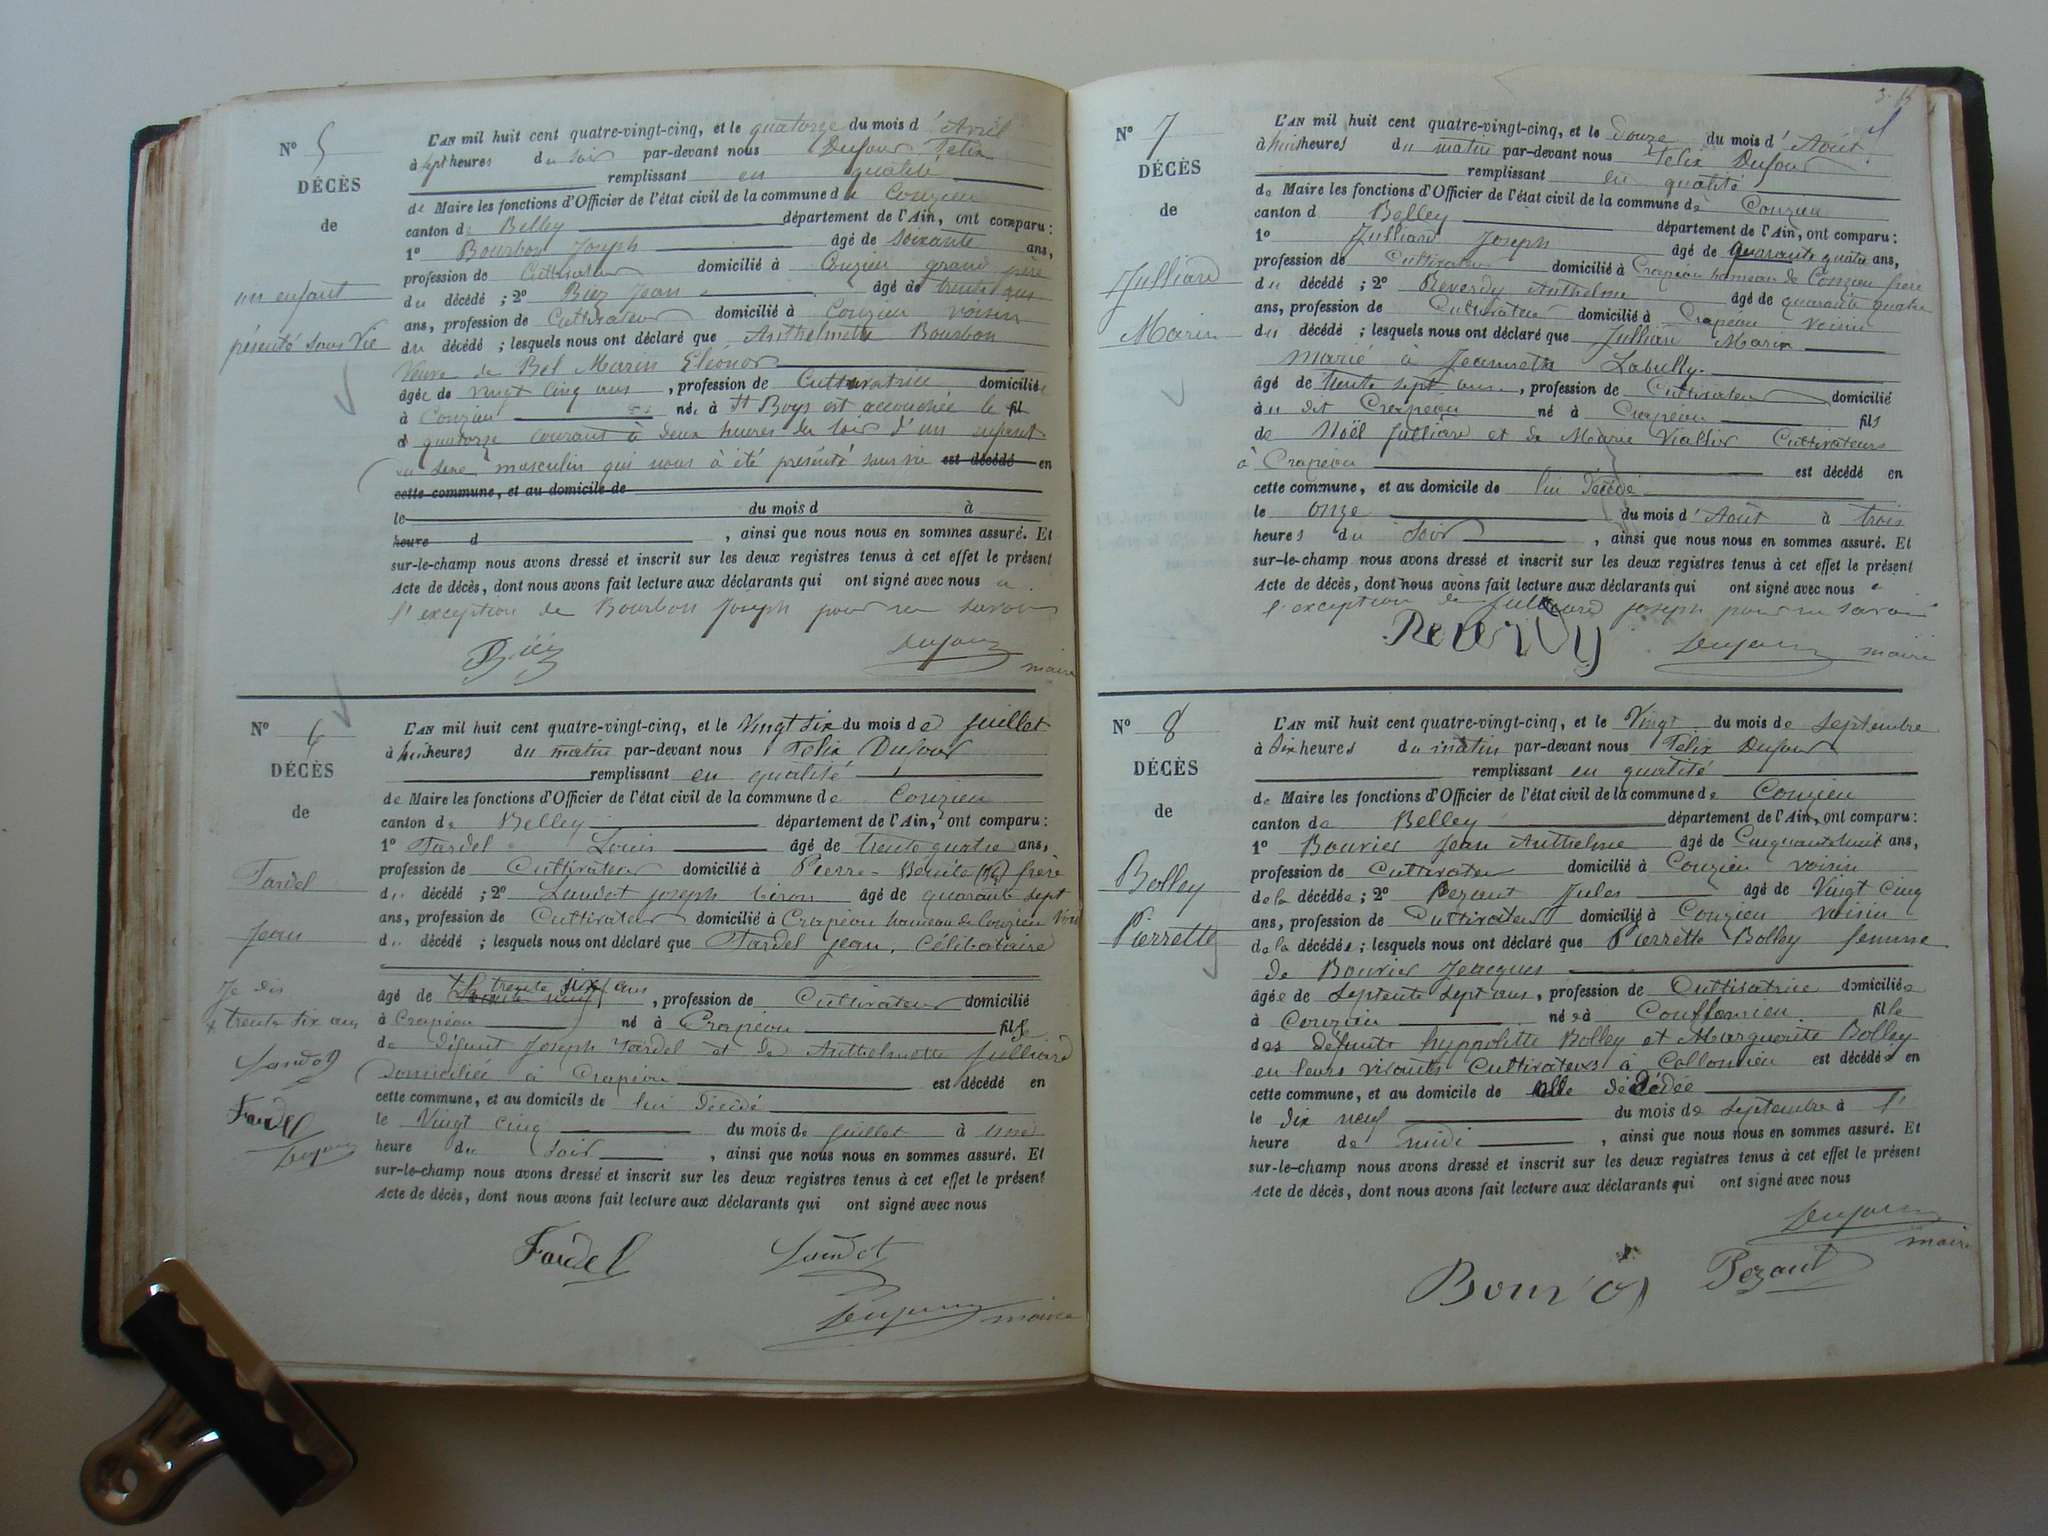 N° 5
DÉCÈS
de
un enfant
présenté sans Vie
L'AN mil huit cent quatre-vingt-cinq, et le quatorze du mois d'Avril
à sept heures du soir par-devant nous Dufour Felix
remplissant en qualité
de Maire les fonctions d'Officier de l'état civil de la commune de Conzieu
canton de Belley département de l'Ain, ont comparu :
1° Bourbon Joseph âgé de soixante ans,
profession de Cultivateur domicilié à Conzieu grand père
du décédé ; 2° Biez Jean âgé de trente
ans, profession de Cultivateur domicilié à Conzieu voisin
du décédé ; lesquels nous ont déclaré que Anthelmette Bourbon
Veuve de Bel Marin Eleonor
âgée de vingt cinq ans, profession de Cultivatrice domiciliée
à Conzieu née à St Boys est accouchée le fil
d quatorze courant à deux heures du soir d'un enfant
du sexe masculin qui nous à été présenté sans vie est décédé en
cette commune, et au domicile de
le du mois d à
heure d , ainsi que nous nous en sommes assuré. Et
sur-le-champ nous avons dressé et inscrit sur les deux registres tenus à cet effet le présent
Acte de décès, dont nous avons fait lecture aux déclarants qui ont signé avec nous a
l'exception de Bourbon Joseph pour ne savoir
Biez Dufour maire
N° 6
DÉCÈS
de
Fardel
Jean
Je dis
+ trente six ans
Landot
Fardel
Dufour
L'AN mil huit cent quatre-vingt-cinq, et le Vingt six du mois de Juillet
à huit heures du matin par-devant nous Felix Dufour
remplissant en qualité
de Maire les fonctions d'Officier de l'état civil de la commune de Conzieu
canton de Belley département de l'Ain, ont comparu :
1° Fardel Louis âgé de trente quatre ans,
profession de Cultivateur domicilié à Pierre-Bénite frère
du décédé ; 2° Landot Joseph âgé de quarante sept
ans, profession de Cultivateur domicilié à Crapéou hameau de Conzieu
du décédé ; lesquels nous ont déclaré que Fardel Jean, Célibataire
+ trente six ans
âgé de trente neuf, profession de Cultivateur domicilié
à Crapéou né à Crapéou fils
de défunt Joseph Fardel et de Anthelmette Julliard
domiciliée à Crapéou est décédé en
cette commune, et au domicile de lui décédé
le Vingt cinq du mois de Juillet à une
heure du soir , ainsi que nous nous en sommes assuré. Et
sur-le-champ nous avons dressé et inscrit sur les deux registres tenus à cet effet le présent
Acte de décès, dont nous avons fait lecture aux déclarants qui ont signé avec nous
Fardel Landot
Dufour maire
N° 7
DÉCÈS
de
Julliard
Marin
L'AN mil huit cent quatre-vingt-cinq, et le Douze du mois d'Août
à huit heures du matin par-devant nous Felix Dufour
remplissant en qualité
de Maire les fonctions d'Officier de l'état civil de la commune de Conzieu
canton d Belley département de l'Ain, ont comparu :
1° Julliard Joseph âgé de Quarante quatre ans,
profession de Cultivateur domicilié à Crapéou hameau de Conzieu frère
du décédé ; 2° Reverdy Anthelme âgé de quarante quatre
ans, profession de Cultivateur domicilié à Crapéou voisin
du décédé ; lesquels nous ont déclaré que Julliard Marin
marié à Jeannette Labully
âgé de trente sept ans, profession de Cultivateur domicilié
à u dit Crapéou né à Crapéou fils
de Noël Julliard et de Marie Viallet Cultivateurs
à Crapéou est décédé en
cette commune, et au domicile de lui décédé
le onze du mois d'Août à trois
heures du Soir , ainsi que nous nous en sommes assuré. Et
sur-le-champ nous avons dressé et inscrit sur les deux registres tenus à cet effet le présent
Acte de décès, dont nous avons fait lecture aux déclarants qui ont signé avec nous à
l'exception de Julliard Joseph pour ne savoir
Reverdy Dufour maire
N° 8
DÉCÈS
de
Bolley
Pierrette
L'AN mil huit cent quatre-vingt-cinq, et le Vingt du mois de Septembre
à six heures du matin par-devant nous Felix Dufour
remplissant en qualité
de Maire les fonctions d'Officier de l'état civil de la commune de Conzieu
canton de Belley département de l'Ain, ont comparu :
1° Bouvier Jean Anthelme âgé de Cinquante huit ans,
profession de Cultivateur domicilié à Conzieu voisin
de la décédée ; 2° Pezant Jules âgé de Vingt cinq
ans, profession de Cultivateur domicilié à Conzieu voisin
de la décédée ; lesquels nous ont déclaré que Pierrette Bolley femme
de Bouvier Jacques
âgée de Septente sept ans, profession de Cultivatrice domiciliée
à Conzieu née à fille
des défunts hyppolitte Bolley et Marguerite Bolley
en leurs vivants Cultivateurs à Collomieu est décédée en
cette commune, et au domicile de elle décédée
le dix neuf du mois de Septembre à l'
heure de midi , ainsi que nous nous en sommes assuré. Et
sur-le-champ nous avons dressé et inscrit sur les deux registres tenus à cet effet le présent
Acte de décès, dont nous avons fait lecture aux déclarants qui ont signé avec nous
Dufour maire
Bouvier Pezant